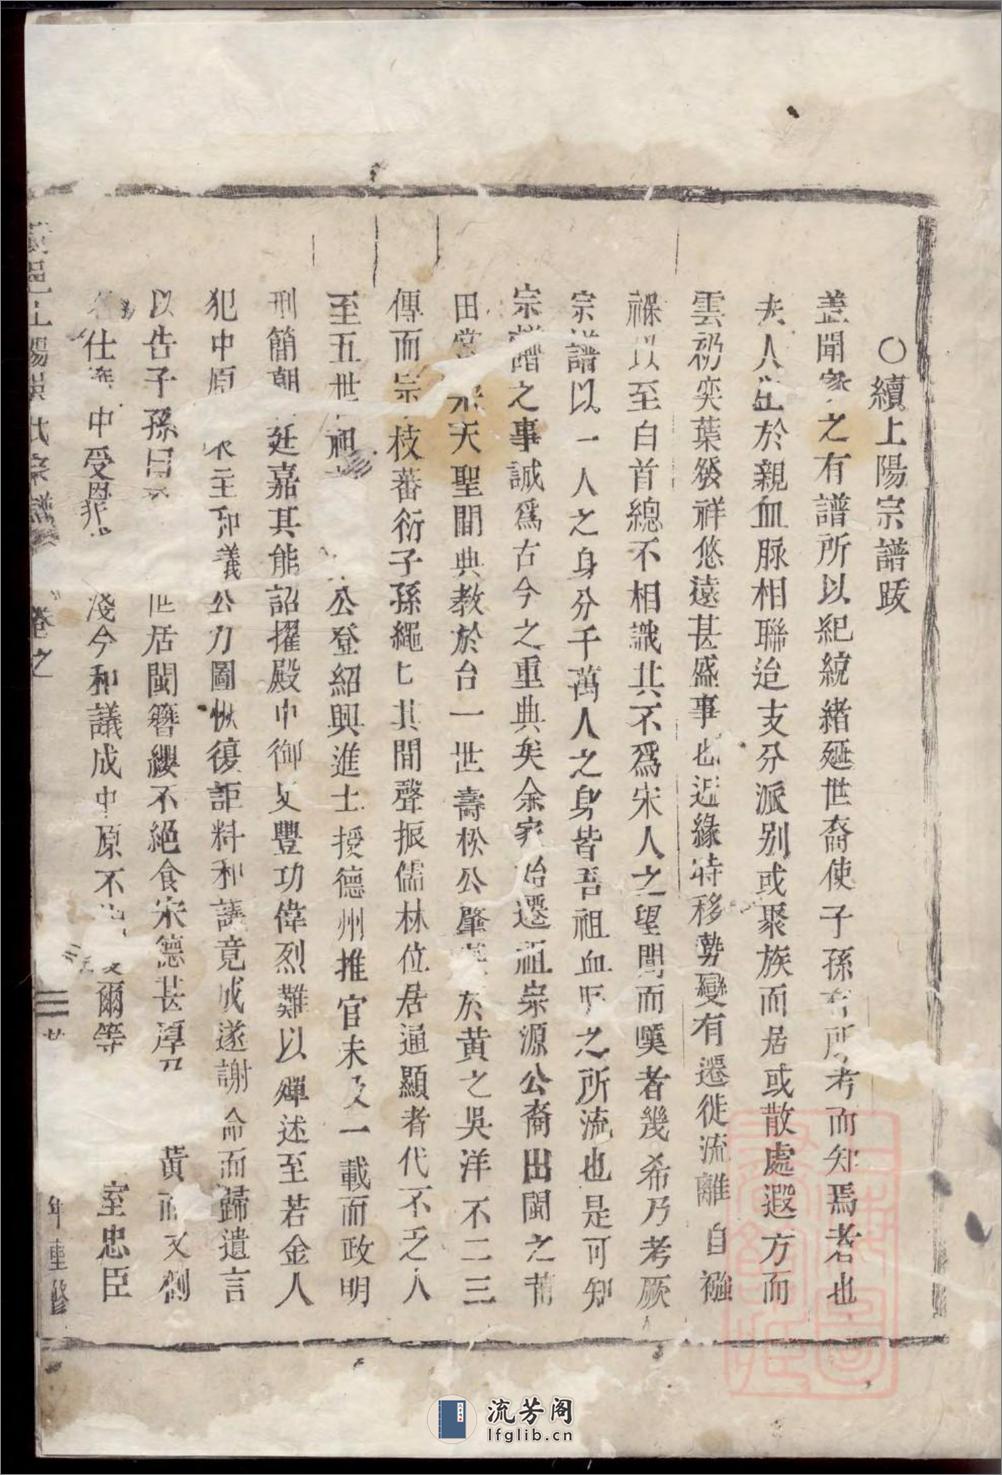 ○續上陽宗譜跋
葢聞家之有譜所以紀統緒延世裔使子孫有所考而知焉者也
夫人生於親血脉相聯迨支分派别或聚族而居或散處遐方而
雲礽奕葉發祥悠遠甚盛事也近緣時移勢變有遷徙流離自襁
褓以至白首總不相識共不爲宋人之望閩而嘆者幾希乃考厥
宗譜以一人之身分千萬人之身皆吾祖血脉之所流也是可知
宗譜之事誠爲古今之重典矣余家始遷祖宗源公裔出閩之莆
田當宋天聖間典教於台一世壽松公肇於黄之吳洋不二三
傳而宗枝蕃衍子孫繩七其間聲振儒林位居通顯者代不乏人
至五世祖公登紹興進士授德州推官未及一載而政明
刑簡朝廷嘉其能詔擢殿中御史豐功偉烈難以殫述至若金人
犯中原主和議公力圖恢復詎料和議竟成遂謝命而歸遺言
以告子孫曰世居閩簪纓不絕食宋德甚厚黄而又創
仕中受淺今和議成中原不爾等室忠臣
上陽氏宗譜
卷之
年重修
流芳阁
lfglib.cn